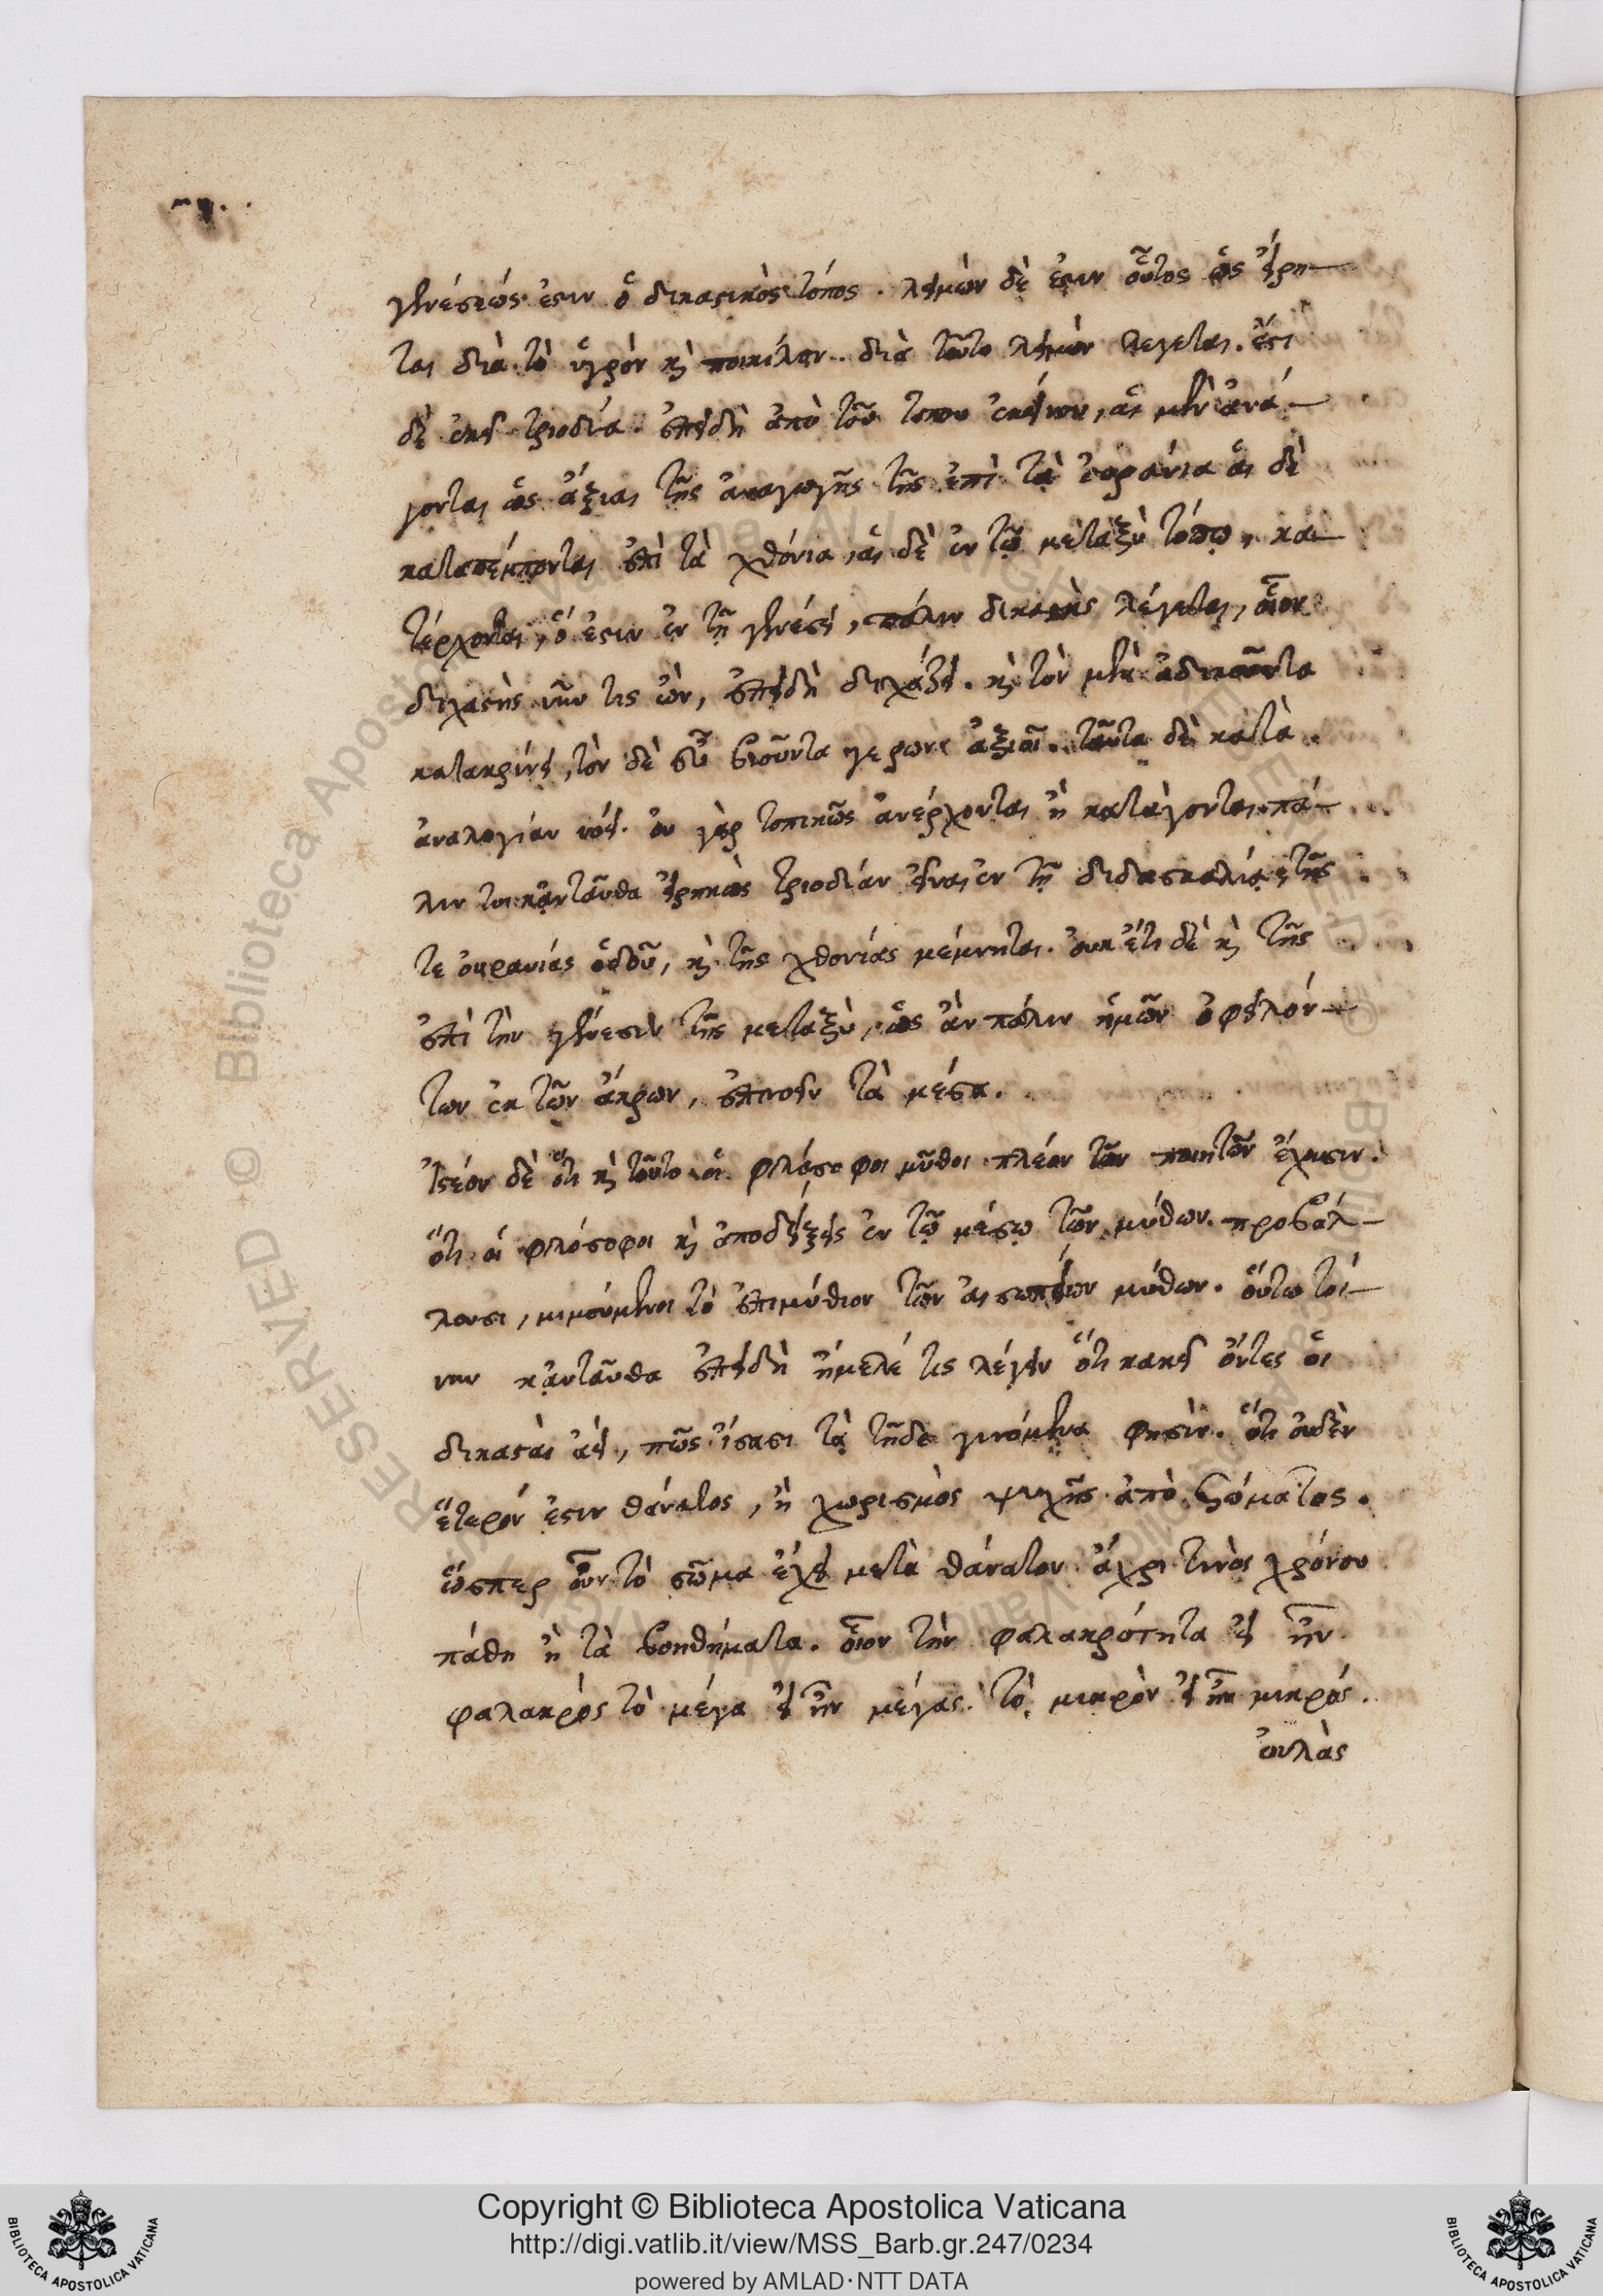 γενέσεώς ἐστιν ὁ δικαστικὸς τόπος. λειμὼν δέ ἐστιν οὗτος ὡς εἴρη-
ται διὰ τὸ ὑγρὸν καὶ ποικίλον. διὰ τοῦτο λειμὼν λεγεται. ἔστι
δὲ ἐκεῖ τριοδία. ἐπειδὴ ἀπὸ τοῦ τοπου ἐκείνου, αἱ μὲν ἀνά-
γονται ὡς ἄξιαι τῆς ἀναγωγῆς τῆς ἐπὶ τὰ οὐράνια αἱ δὲ
καταπέμπονται ἐπὶ τὰ χθόνια, αἱ δὲ ἐν τῷ μεταξὺ τόπῳ, κα-
τέρχονται, ὅ ἐστιν ἐν τῇ γενέσει, πάλιν δικαστὴς λέγεται, οἷον
διχαστὴς νῦν τις ὢν, ἐπειδὴ διχάζει. καὶ τὸν μὲν ἀδικοῦντα
κατακρίνει, τὸν δὲ εὖ βιοῦντα γερως ἀξιοῖ. ταῦτα δὲ κατὰ
ἀναλογίαν νόει. οὐ γὰρ τοπικῶς ἀνέρχονται ἢ κατάγονται. πά-
λιν τοι κἀνταῦθα εἰρηκὼς τριοδίαν εἶναι ἐν τῇ διδασκαλίᾳ, τῆς
τε οὐρανίας ὁδοῦ, καὶ τῆς χθονίας μέμνηται. οὐκ έτι δὲ καὶ τῆς
ἐπὶ τὴν γένεσιν τῆς μεταξὺ, ὡς ἂν πάλιν ἡμῶν ὀφειλόν-
των ἐκ τῶν ἄκρων, ἐπινοεῖν τὰ μέσα.
Ἰστέον δὲ ὅτι καὶ τοῦτο οἱ φιλόσοφοι μῦθοι πλέον τῶν ποιητῶν ἔχουσιν.
ὅτι οἱ φιλόσοφοι καὶ ἀποδείξεις ἐν τῷ μέσῳ τῶν μύθων. προβάλ-
λουσι, μιμούμενοι τὸ ἐπιμύθιον τῶν αἰσωπείων μύθων. οὕτω τοί-
νυν κἀνταῦθα ἐπειδὴ ἤμελέ τις λέγειν ὅτι κακεῖ ὄντες οἱ
δικασταὶ ἀεὶ, πῶς ἴσασι τὰ τῇδε γινόμενα φησὶν. ὅτι οὐδὲν
ἕτερόν ἐστιν θάνατος, ἢ χωρισμὸς ψυχῆς ἀπὸ σώματος.
ὥσπερ οὖν τὸ σῶμα ἔχει μετὰ θάνατον ἄχρι τινὸς χρόνου
πάθη ἢ τὰ βοηθήματα. οἷον τὴν φαλακρότητα εἰ ἦν
φαλακρός τὸ μέγα εἰ ἦν μέγας. τὸ μικρὸν εἰ ἦν μικρός.
οὐλὰς
Copyright © Biblioteca Apostolica Vaticana
http://digi.vatlib.it/view/MSS_Barb.gr.247/0234
powered by AMLAD·NTT DATA